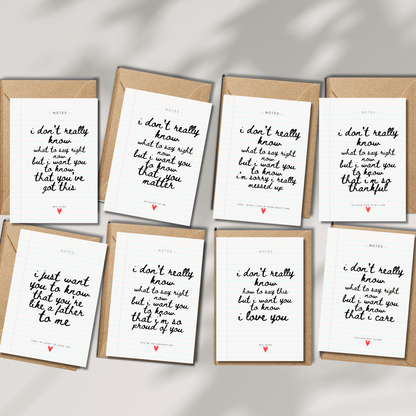 NOTES
i don't really
know
what to say right
now
but i want you
to know
that you've
got this
NOTES
i don't really
know
what to say right
now
but i want you
to know
that you
matter
NOTES
i don't really
know
what to say right
now
but i want you
to know
i'm sorry i really
messed up
NOTES
i don't really
know
what to say right
now
but i want you
to know
that i'm so
thankful
NOTES
i just want
you to know
that you're
like a father
to me
NOTES
i don't really
know
what to say right
now
but i want you
to know
that i'm so
proud of you
NOTES
i don't really
know
how to say this
but i want you
to know
i love you
NOTES
i don't really
know
what to say right
now
but i want you
to know
that i care